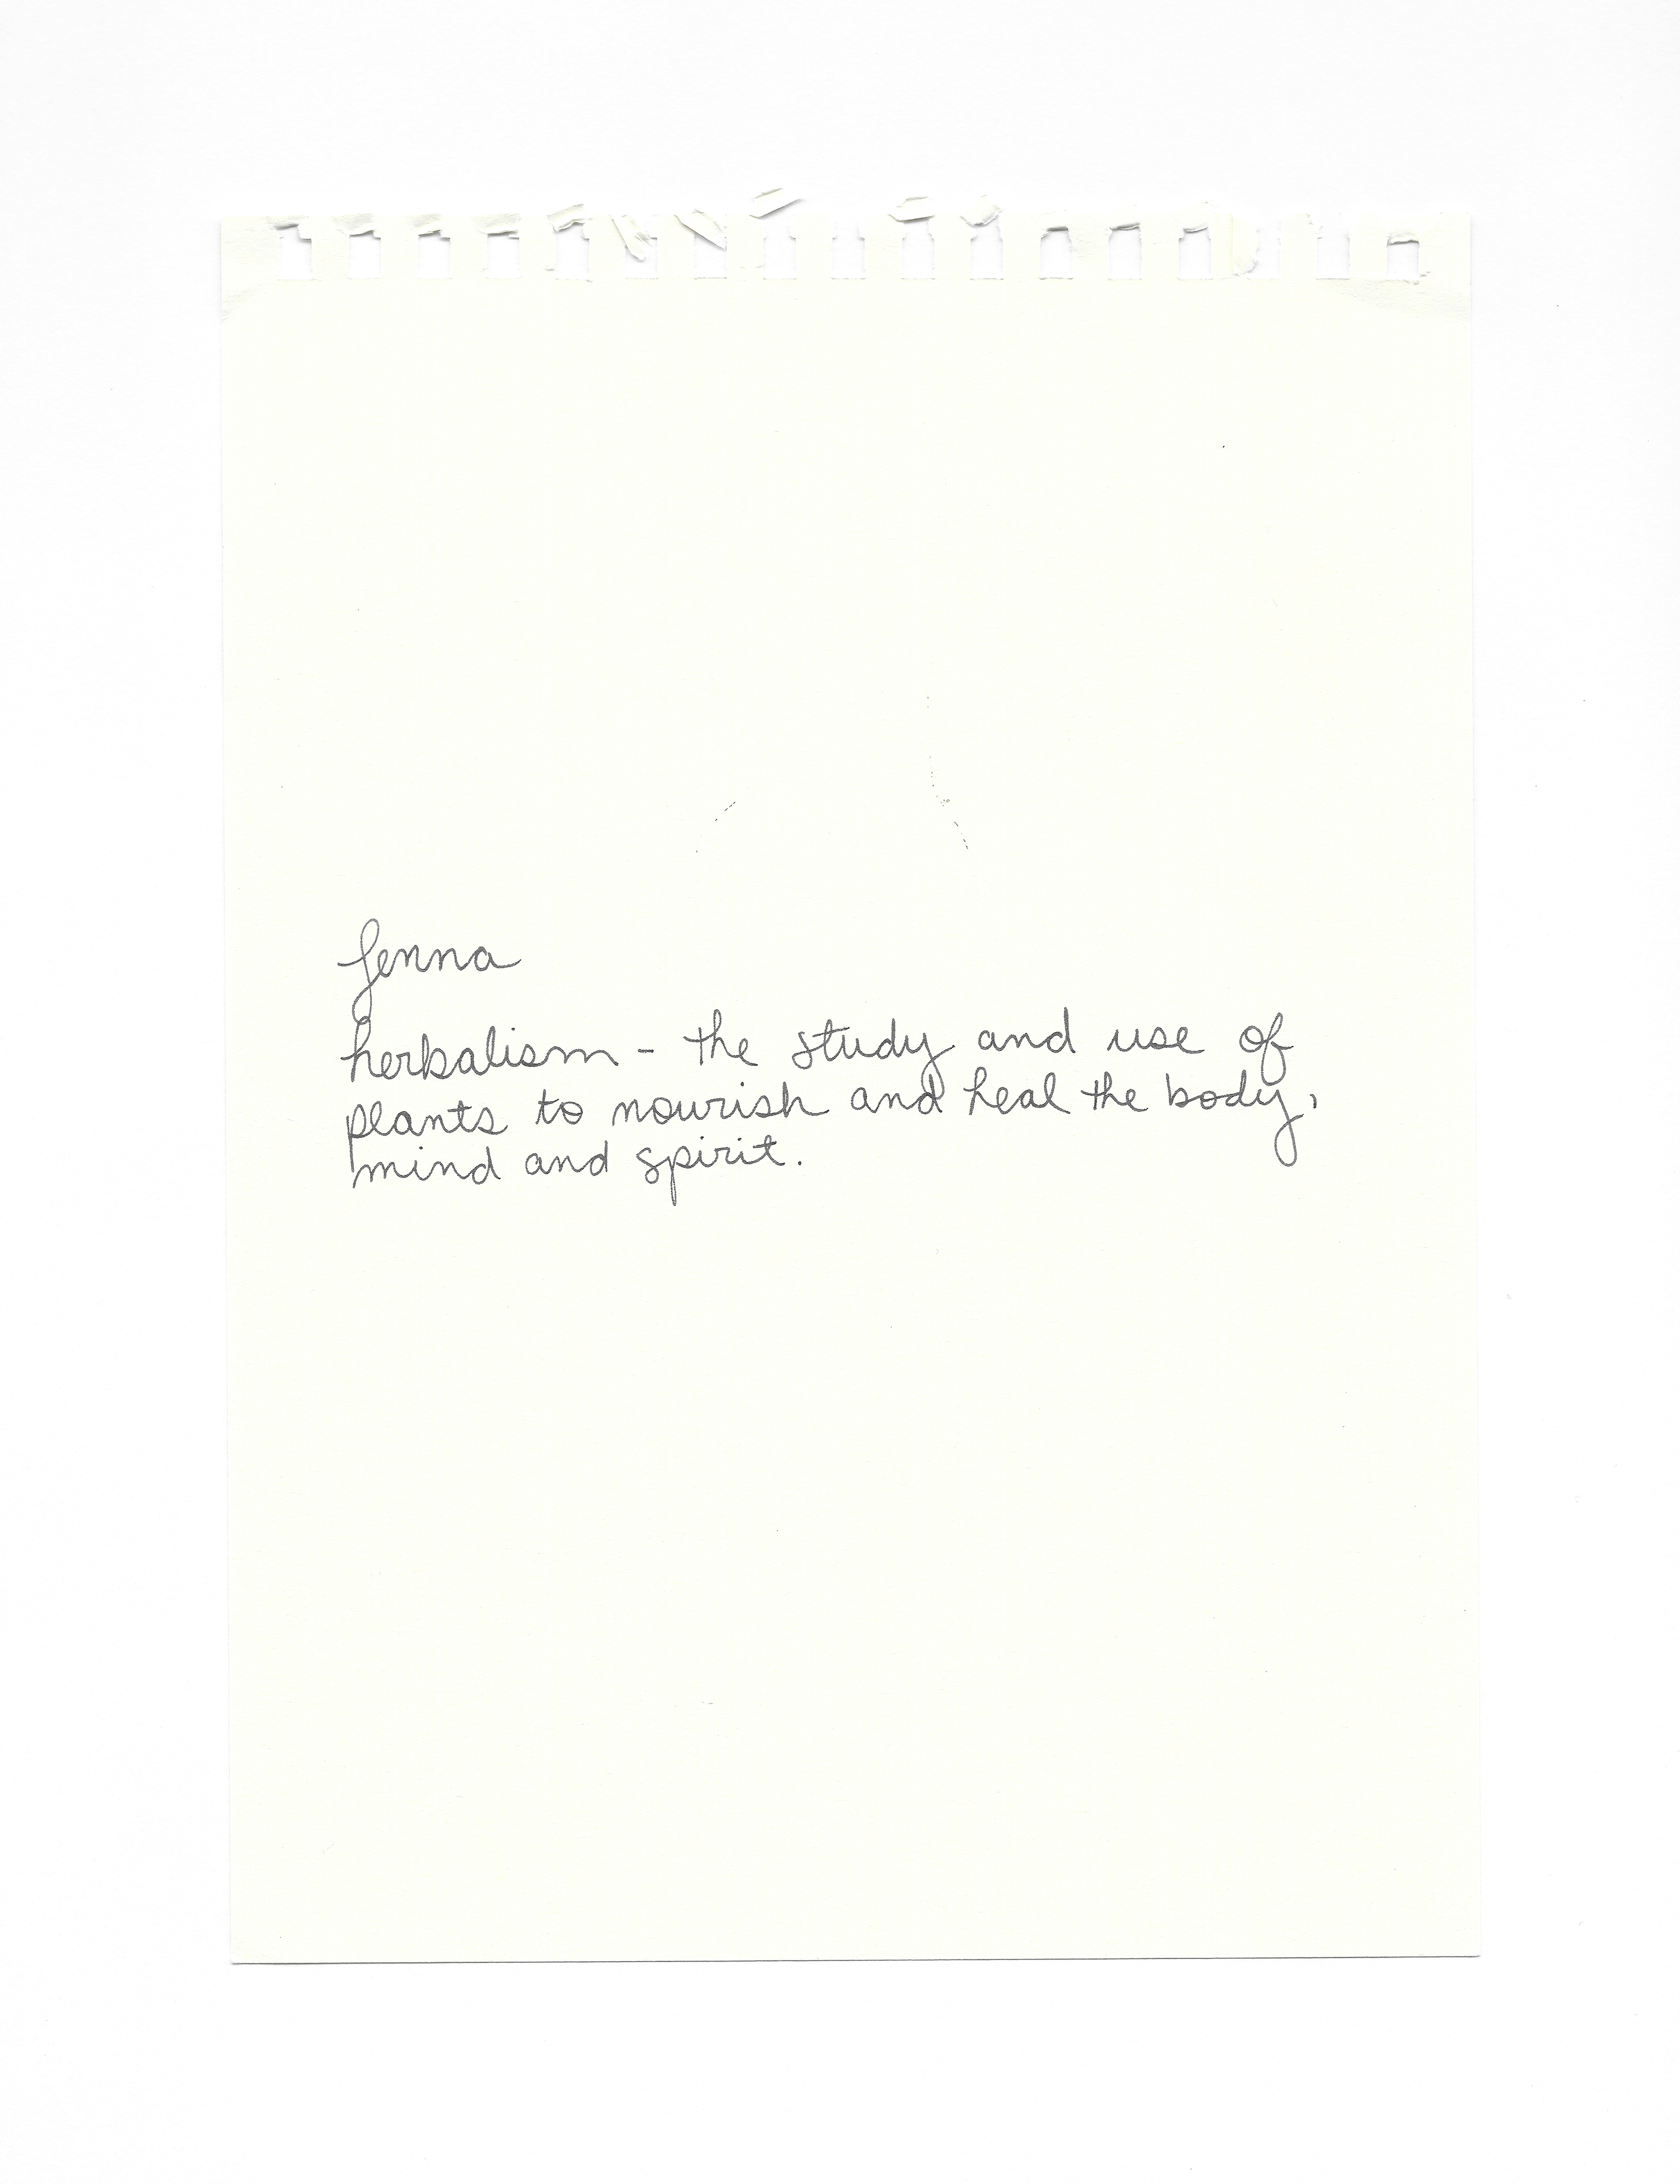 Jenna
herbalism - the study and use of
plants to nourish and heal the body,
mind and spirit.